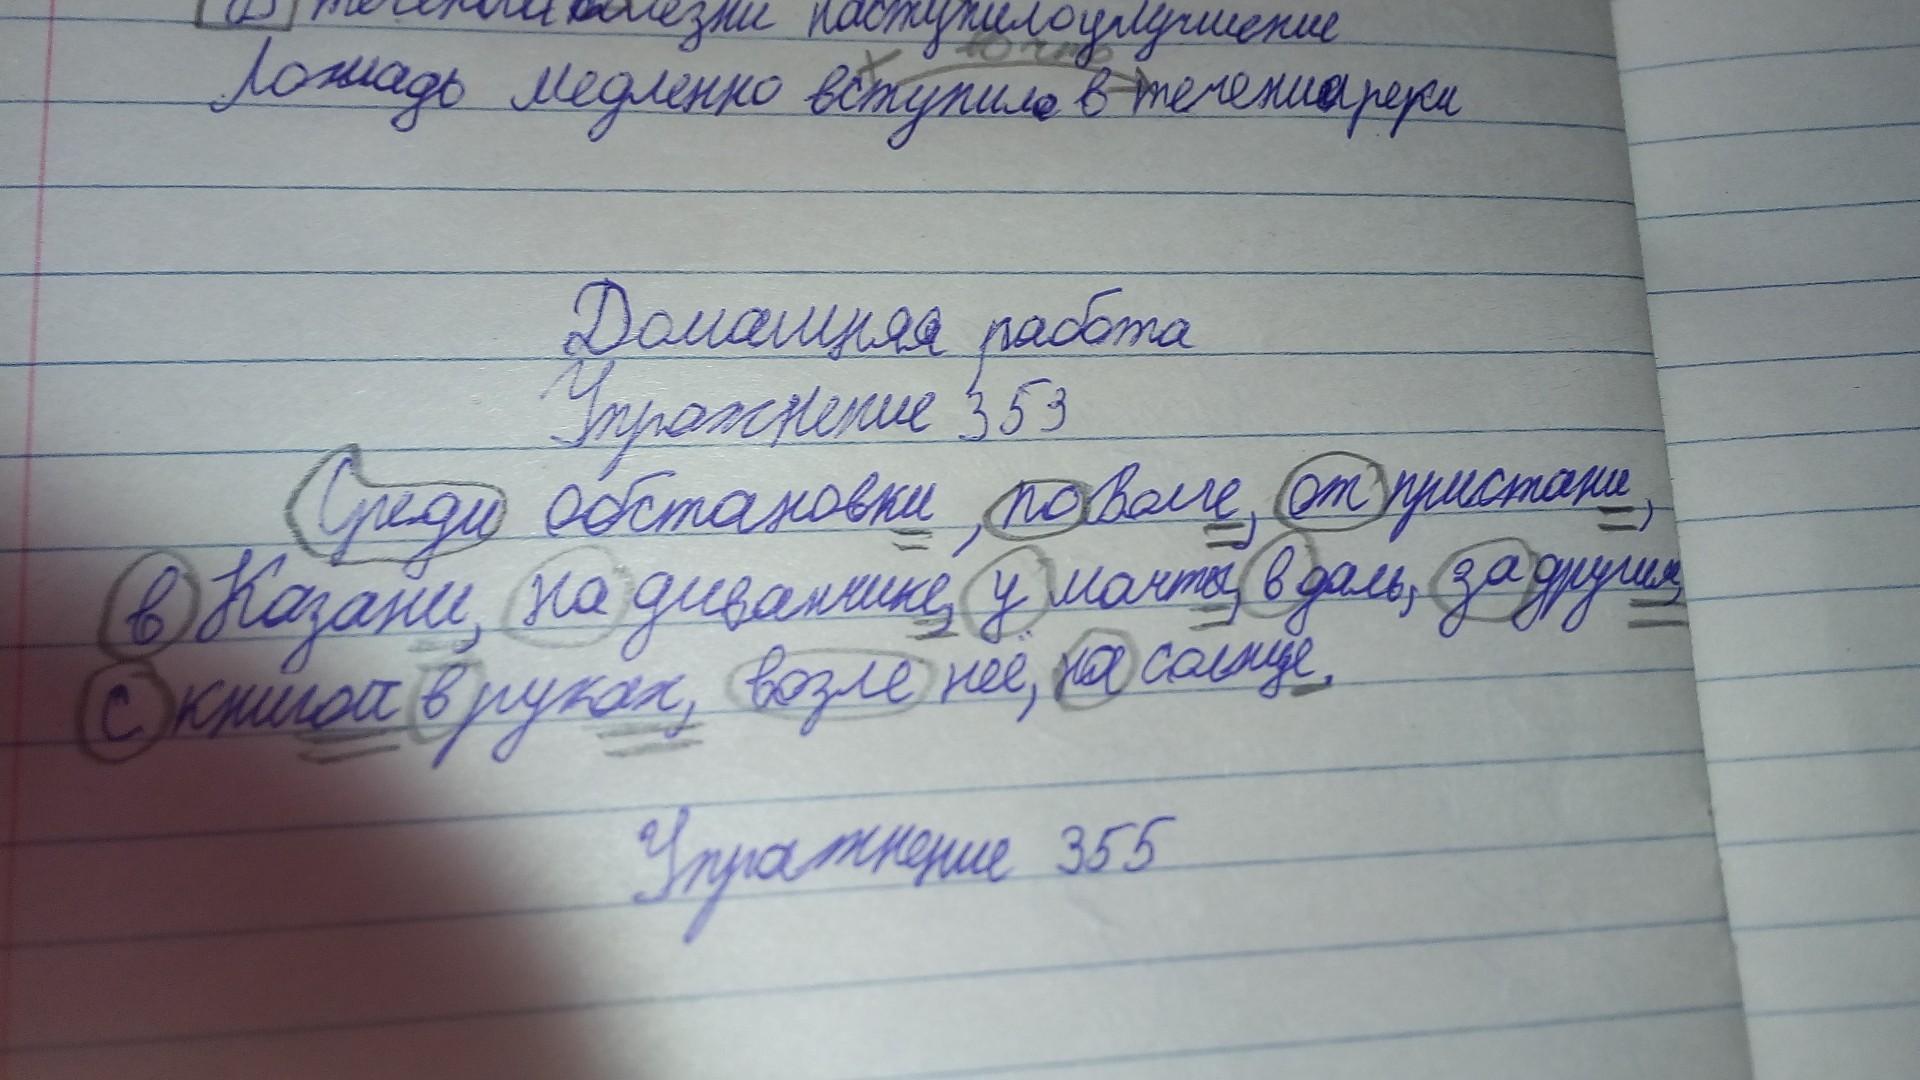 В течении болезни наступило улучшение
Лошадь медленно вступила в течение реки
Домашняя работа
Упражнение 353
Среди обстановки, по Волге, от пристани,
в Казани, на диванчике, у мачты, в даль, за другим,
с книгой в руках, возле неё, на солнце.
Упражнение 355